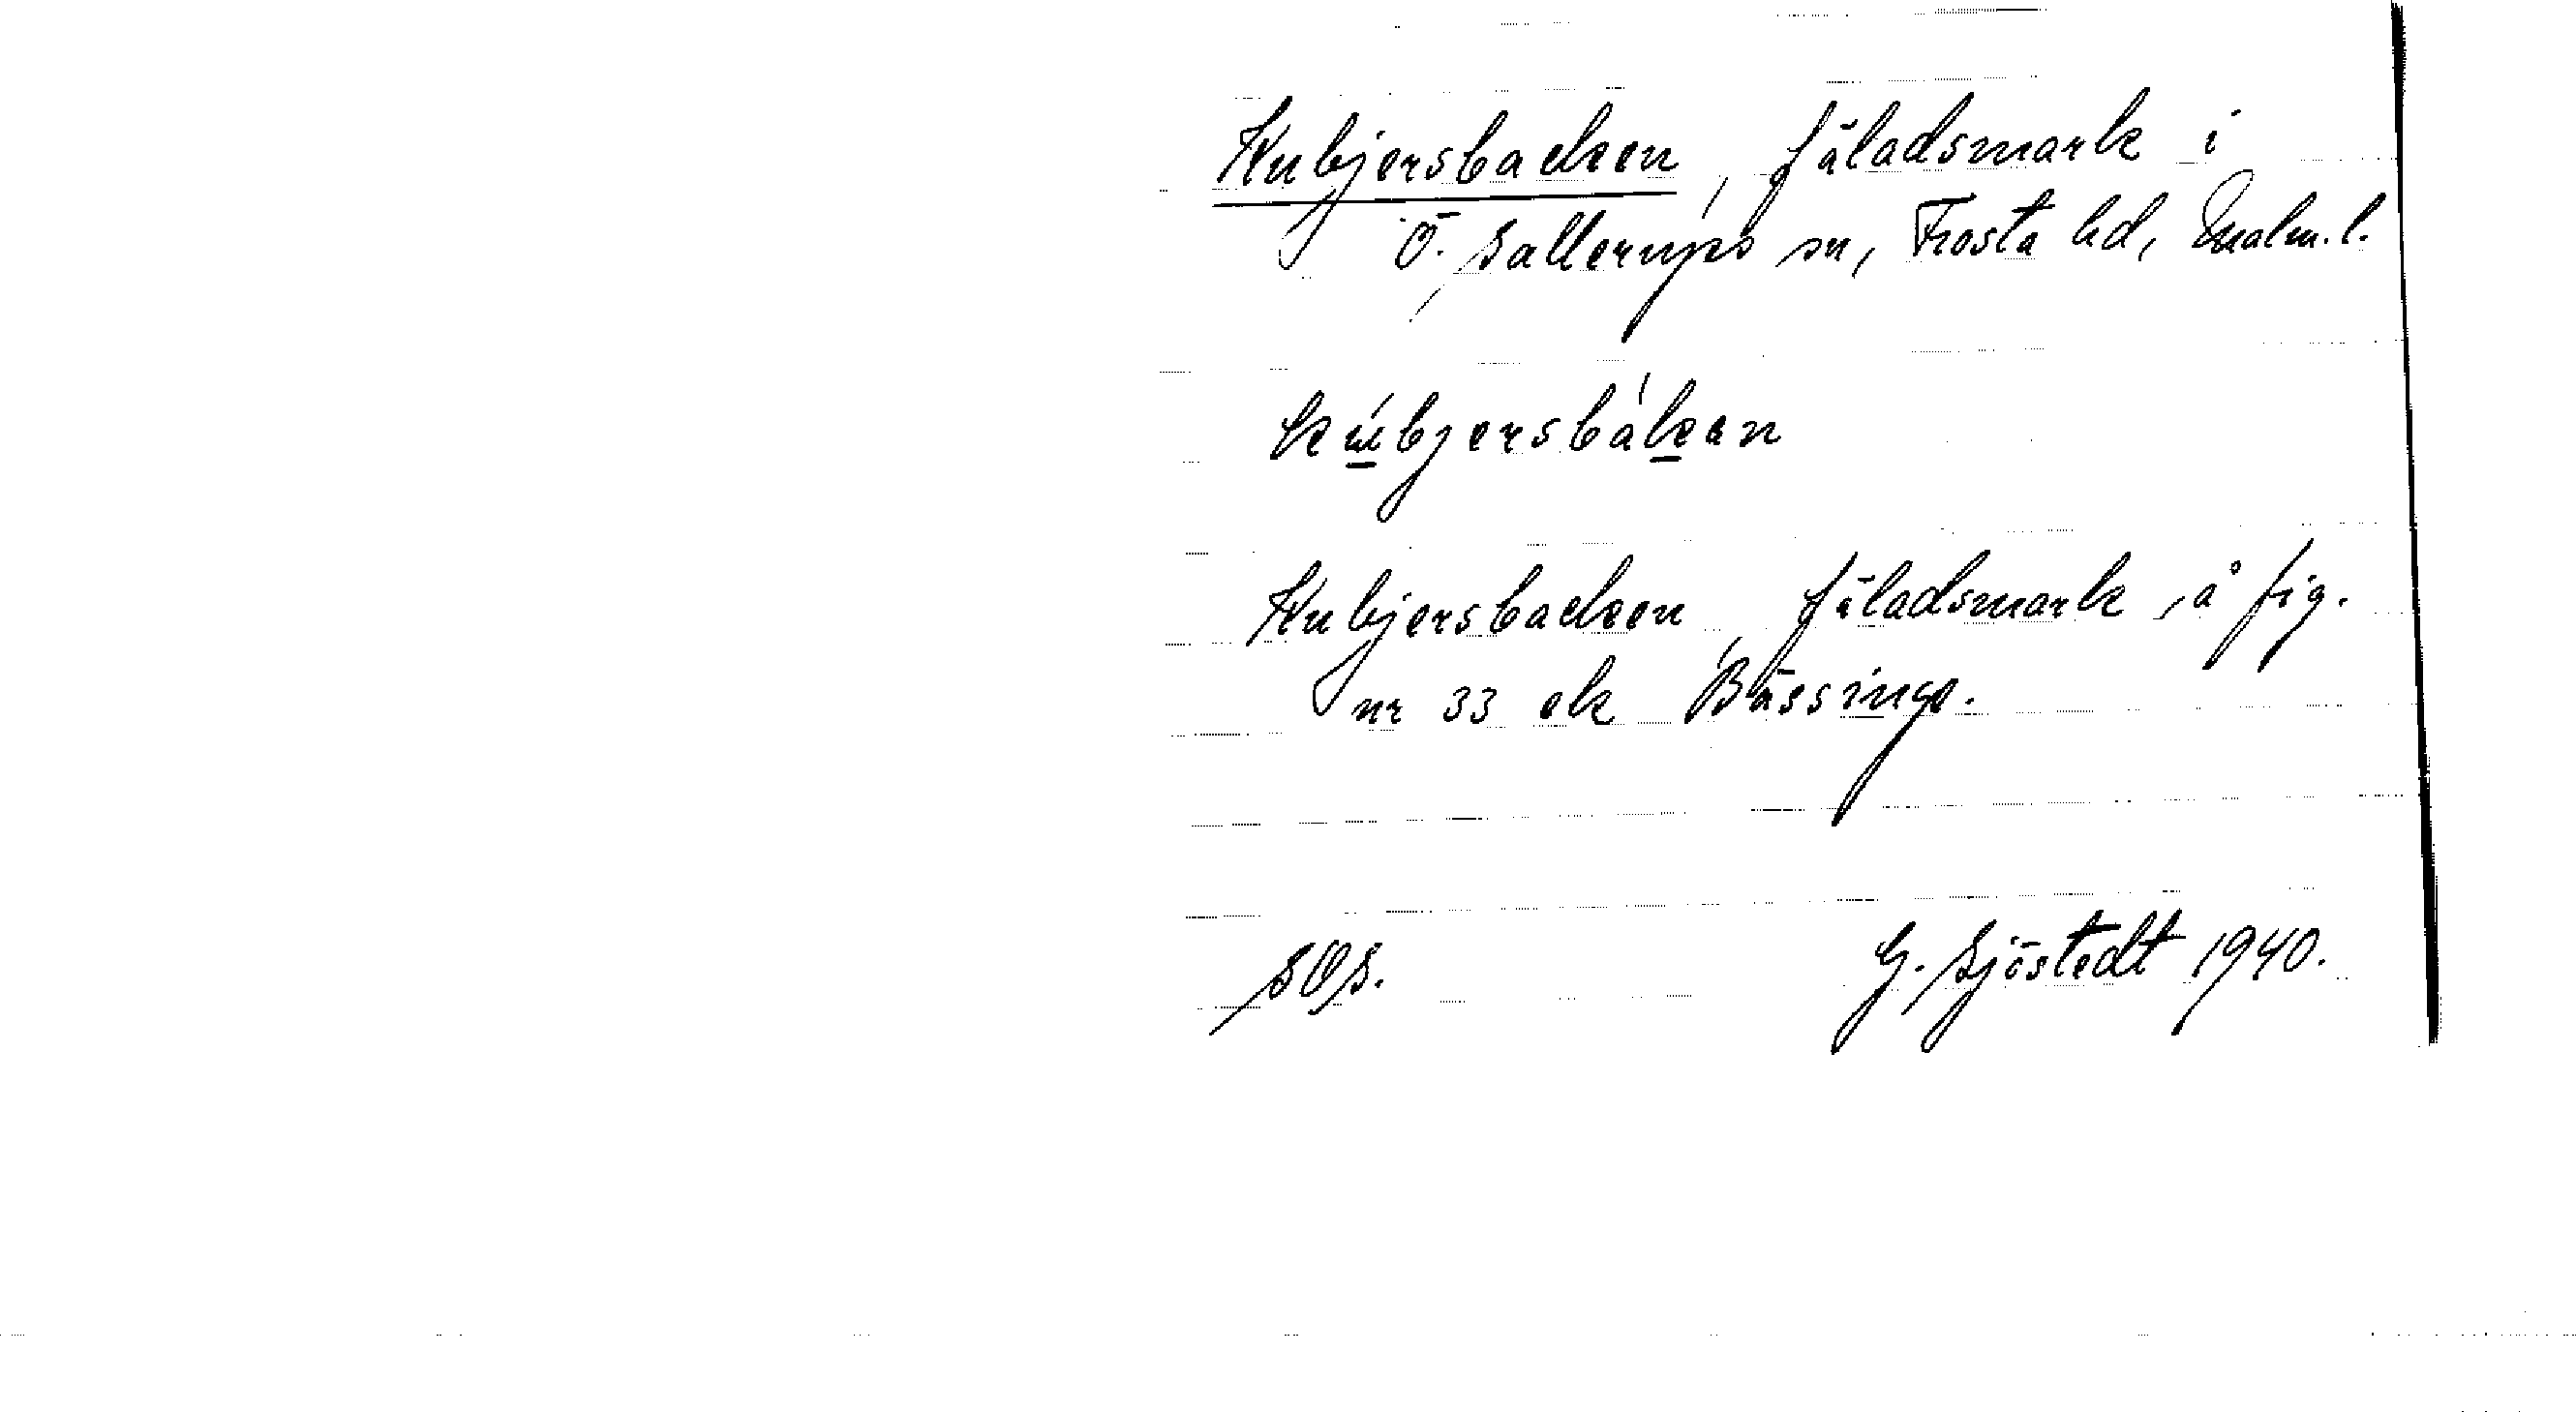 Kubjersbacken, fäladsmark i
Ö. Sallerups sn, Frosta hd, Malm. l.
kúbjersbàkan
Kubjersbacken, fäladsmark, å fig.
nr 33 ek Bässinge.
SOS.
G. Sjöstedt 1940.